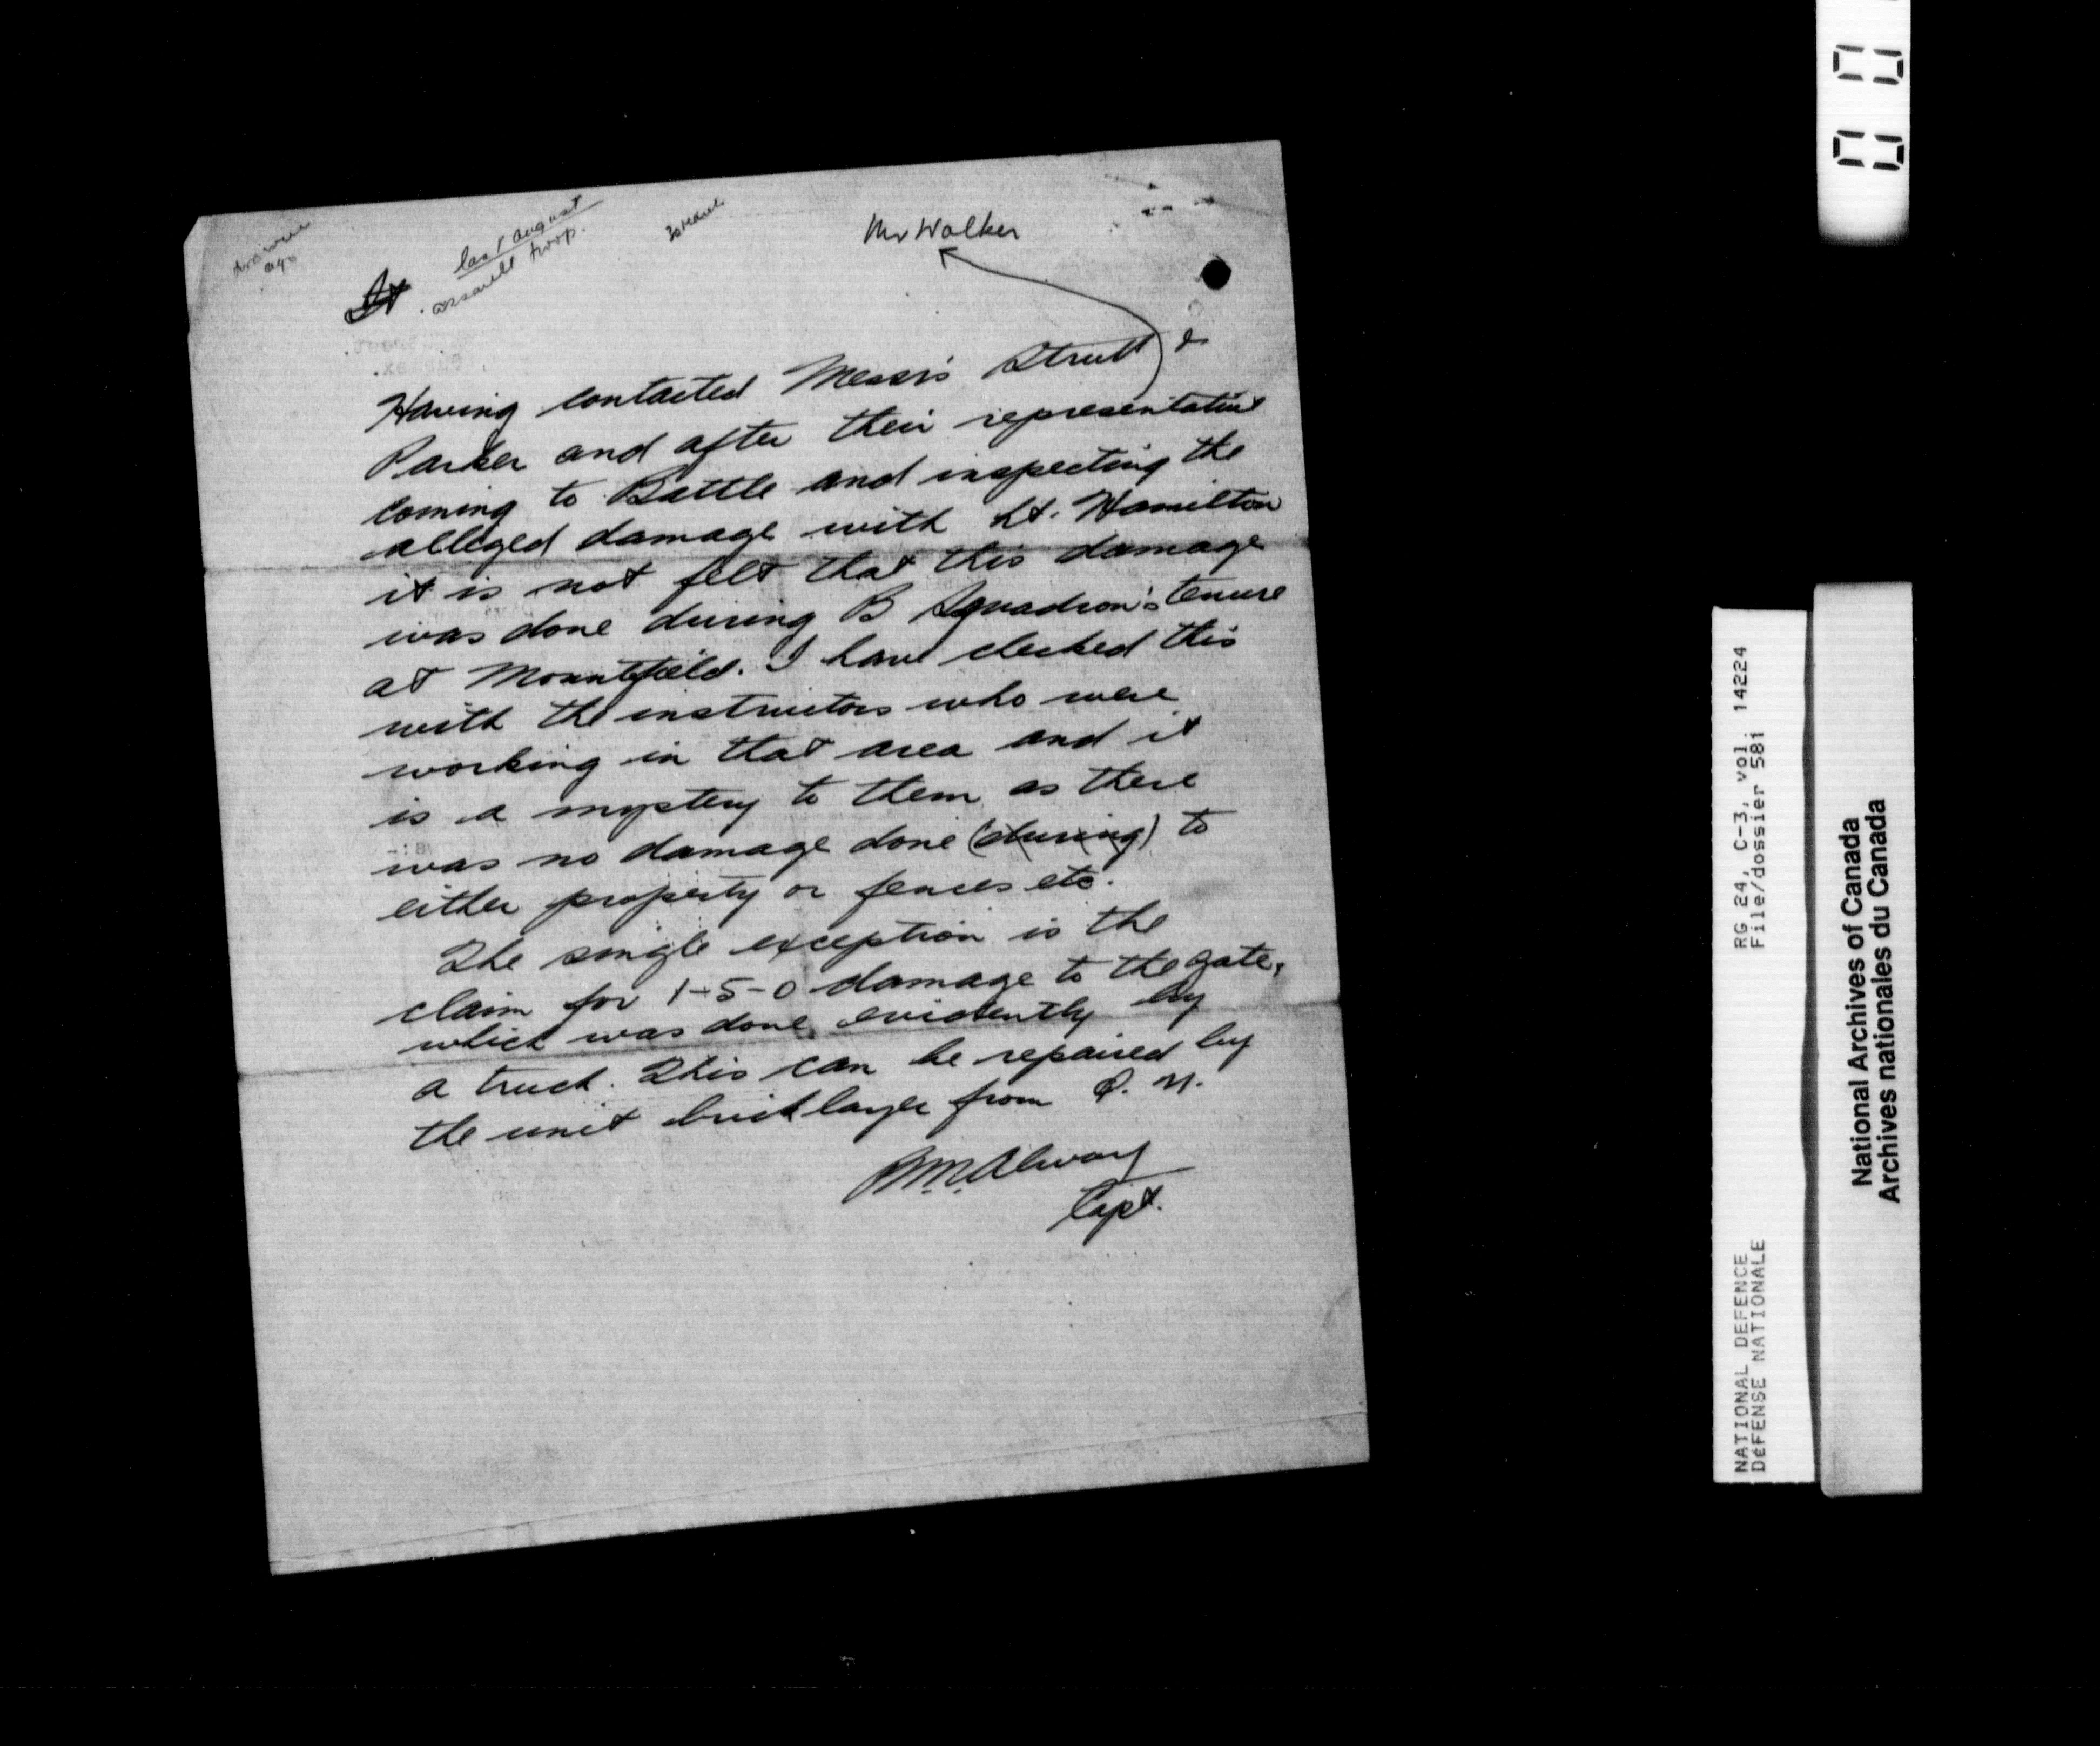 ago
last august
assault troop.
Mr Walker
It
Having contacted Messrs Strutt &
Parker and after their representative
coming to Battle and inspecting the
alleged damage with Lt. Hamilton
it is not felt that this damage
was done during B Squadron's tenure
at Mountfield. I have checked this
with the instructors who were
working in that area and it
is a mystery to them as there
was no damage done (during) to
either property or fences etc.
The single exception is the
claim for 1-5-0 damage to the gate,
which was done evidently by
a truck. This can be repaired by
the unit bricklayer from Q. M.
Capt.
RG 24, C-3, vol. 14224
File/dossier 581
NATIONAL DEFENCE
DéFENSE NATIONALE
National Archives of Canada
Archives nationales du Canada